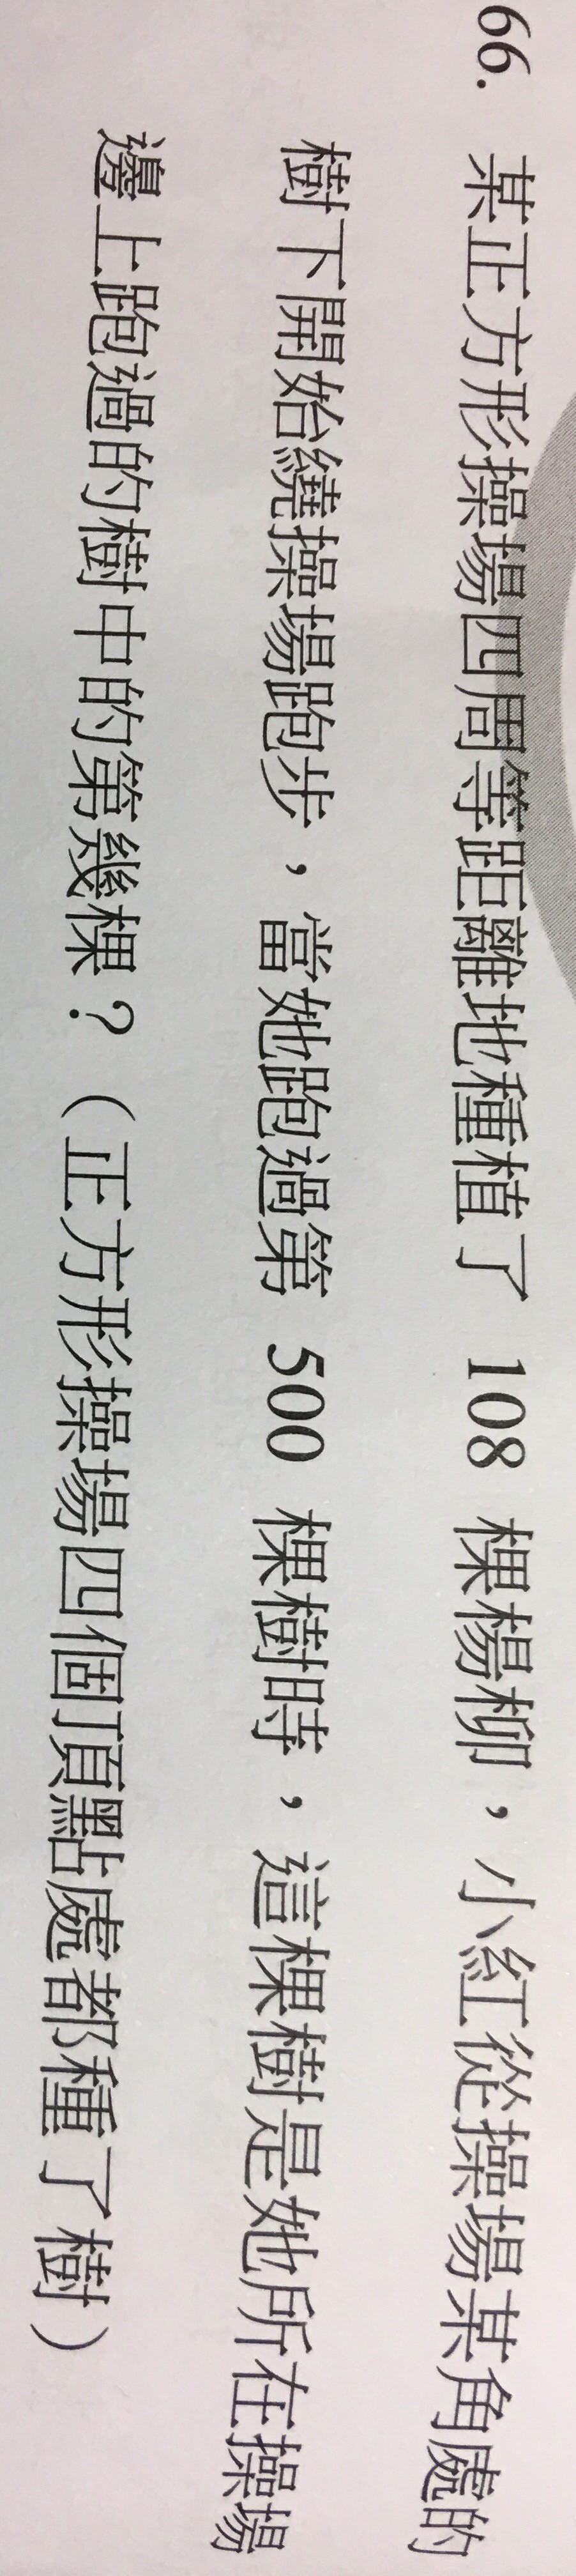 66. 某正方形操場四周等距離地種植了 108 棵楊柳，小紅從操場某角處的
樹下開始繞操場跑步，當她跑過第 500 棵樹時，這棵樹是她所在操場
邊上跑過的樹中的第幾棵？（正方形操場四個頂點處都種了樹）